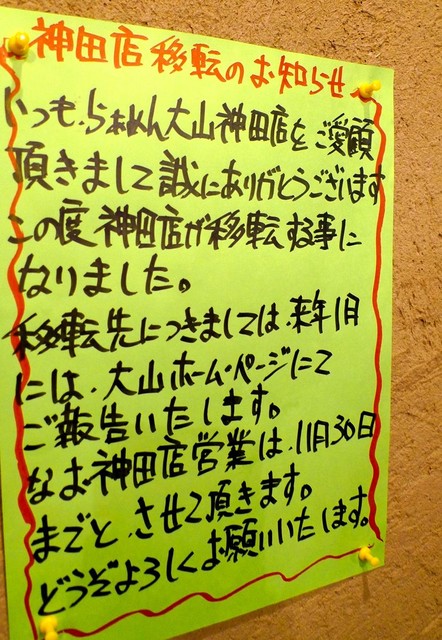 神田店移転のお知らせ
いつも、らぁめん大山神田店をご愛顧
頂きまして誠にありがとうございます
この度神田店が移転する事に
なりました。
移転先につきましては、来年1月
には、大山ホームページにて
ご報告いたします。
なお神田店営業は、11月30日
までと、させて頂きます。
どうぞよろしくお願いいたします。